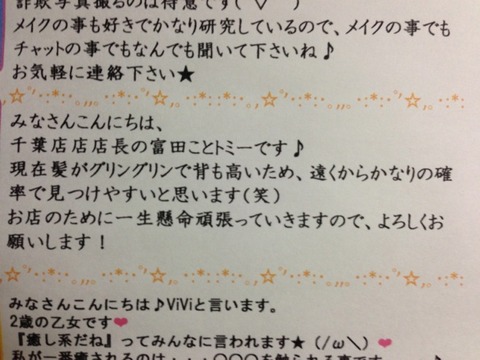 詐欺写真撮るのは得意です(￣▽￣)
メイクの事も好きでかなり研究しているので、メイクの事でも
チャットの事でもなんでも聞いて下さいね♪
お気軽に連絡下さい★
みなさんこんにちは、
千葉店店店長の富田ことトミーです♪
現在髪がグリングリンで背も高いため、遠くからかなりの確
率で見つけやすいと思います(笑)
お店のために一生懸命頑張っていきますので、よろしくお
願いします！
みなさんこんにちは♪ViViと言います。
2歳の乙女です❤
『癒し系だね』ってみんなに言われます★（/ω＼）❤
私が一番癒されるのは・・・〇〇〇を触られる事です